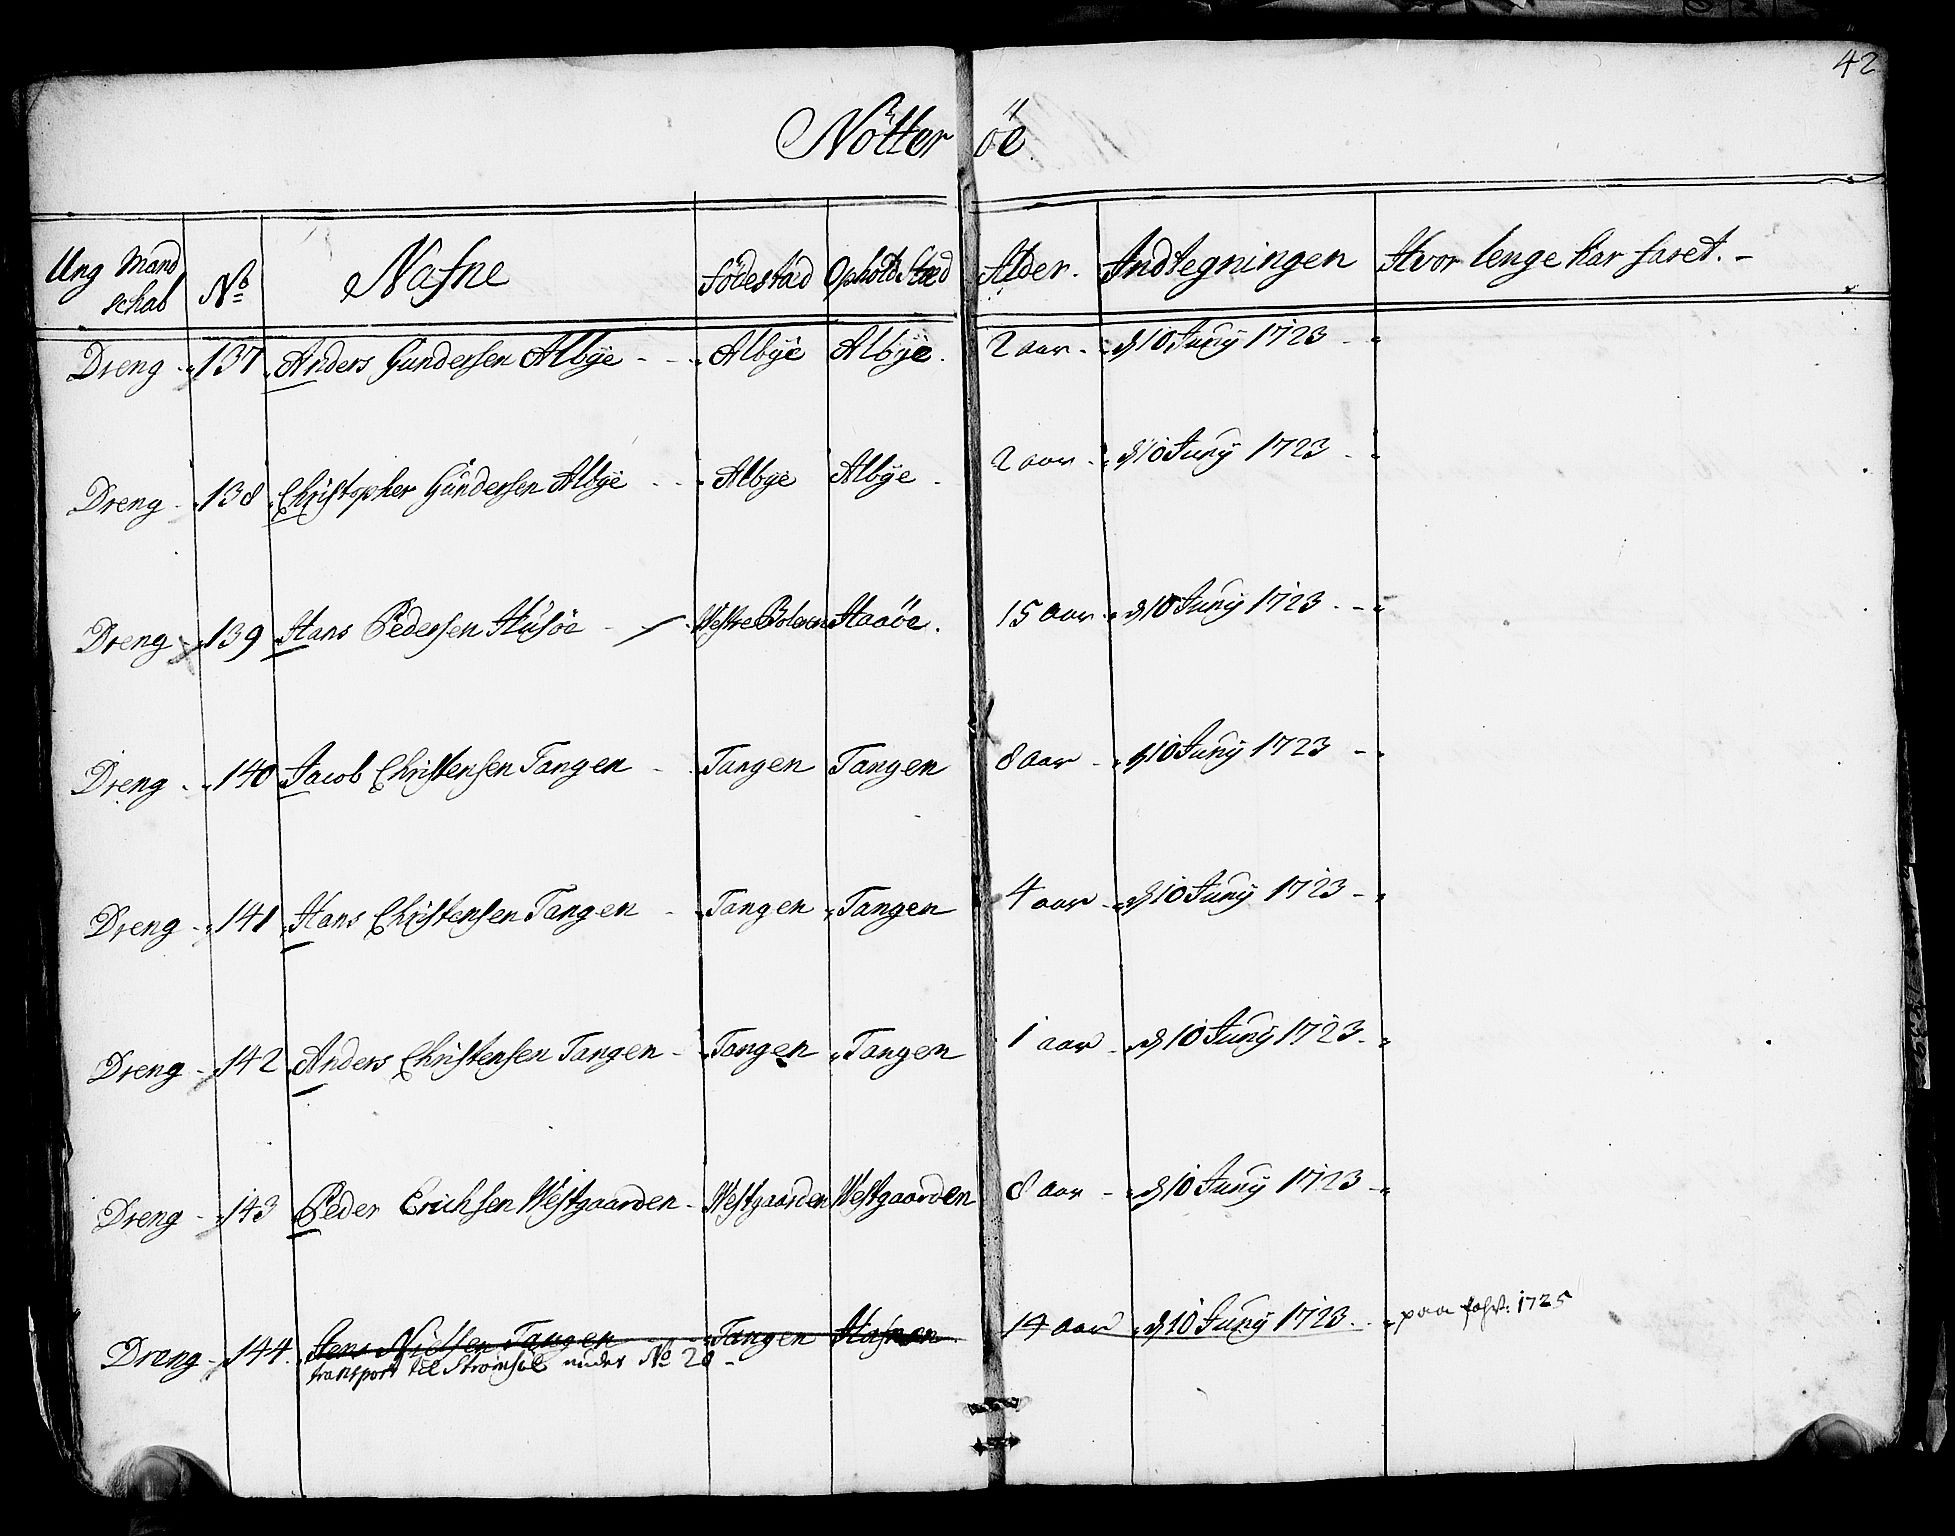 42
Nötteröe
Ung Mand schab No Nafne födestäd Opholdstæd Alder. Indtegningen Hvor lenge har faret. -
Dreng - 137 Anders Gundersen Albÿe - - Albÿe Albÿe. 2 aar - d 10 Junÿ 1723 -
Dreng - 138 Christopher Gundersen Albÿe - - Albÿe Albÿe - 2 aar - d 10 Junÿ 1723 -
Dreng - 139 Hans Pedersen Husöe - Westre Bolæren Haaöe. 15 aar - d 10 Junÿ 1723 - -
Dreng - 140 Jacob Christensen Tangen - Tangen Tangen 8 aar - d 10 Junÿ 1723 -
Dreng - 141 Hans Christensen Tangen - Tangen Tangen 4 aar - d 10 Junÿ 1723 -
Dreng - 142 Anders Christensen Tangen - Tangen Tangen 1 aar - d 10 Junÿ 1723 -
Dreng - 143 Peder Erichsen Westgaarden - Westgaarden Westgaarden 8 aar - d 10 Junÿ 1723 -
Dreng - 144. Jens Nielsen Tangen Tangen 14 aar d 10 Junÿ 1723 - paa 1725
transport til Strömsöe under No 28 -